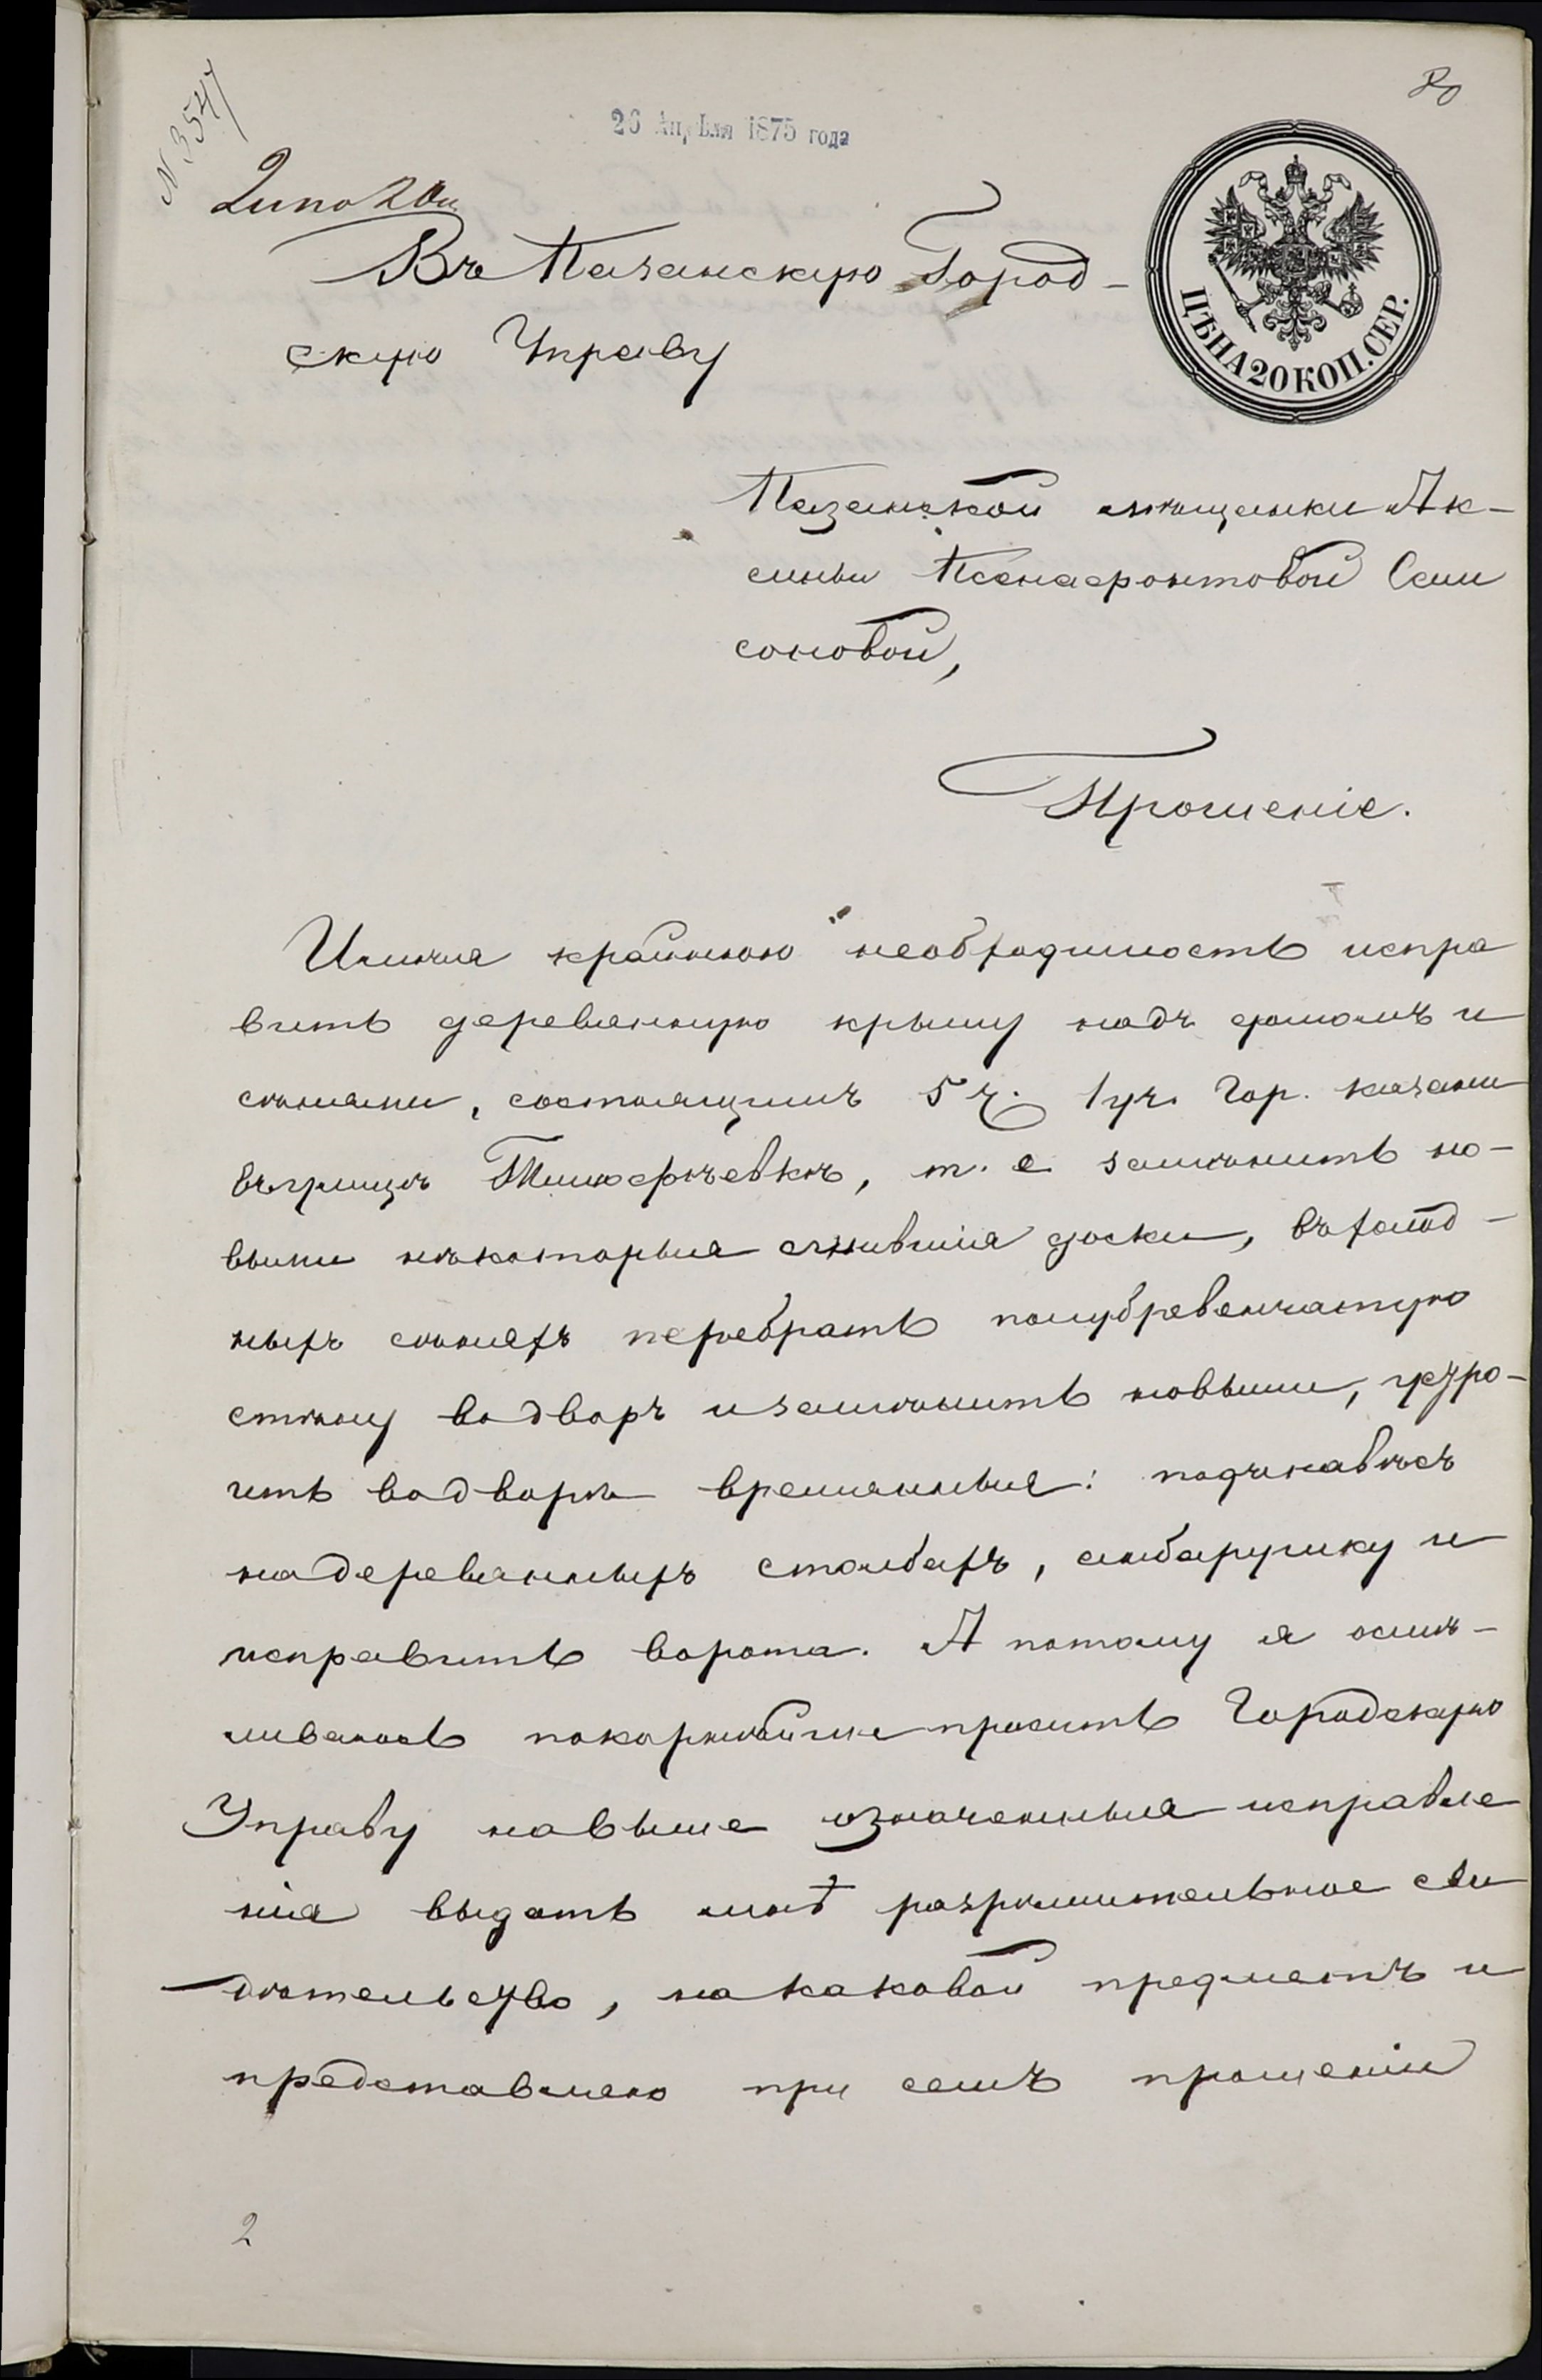 80
N 3547
26 Апрѣля 1875 года
2 лита 20 к
Въ Казанскую Город-
скую Управу
ЦѢНА 20 КОП. СЕР.
Казанской мѣщанки Ак-
синьи Ксенофонтовой Сам
соновой,
Прошеніе.
Имѣя крайнюю необходимость испра
вить деревянную крышу надъ домомъ и
сѣнями, состоящимъ 5 ч. 1 уч. Гор. Казани
въ улицѣ , т. е замѣнить но-
выми нѣкоторыя сгнившія доски, въ холод-
ныхъ сѣняхъ перебрать полубревенчатую
стѣну во дворъ и замѣнить новыми, устро-
ить во дворѣ временныя: поднавѣсъ
на деревянныхъ столбахъ, амбарушку и
исправить ворота. А потому я осмѣ-
ливаюсь покорнѣйше просить Городскую
Управу на выше означенныя исправле
нія выдать мнѣ разрѣшительное сви
дѣтельство, на каковой предметъ и
представлено при семъ прошеніи
2